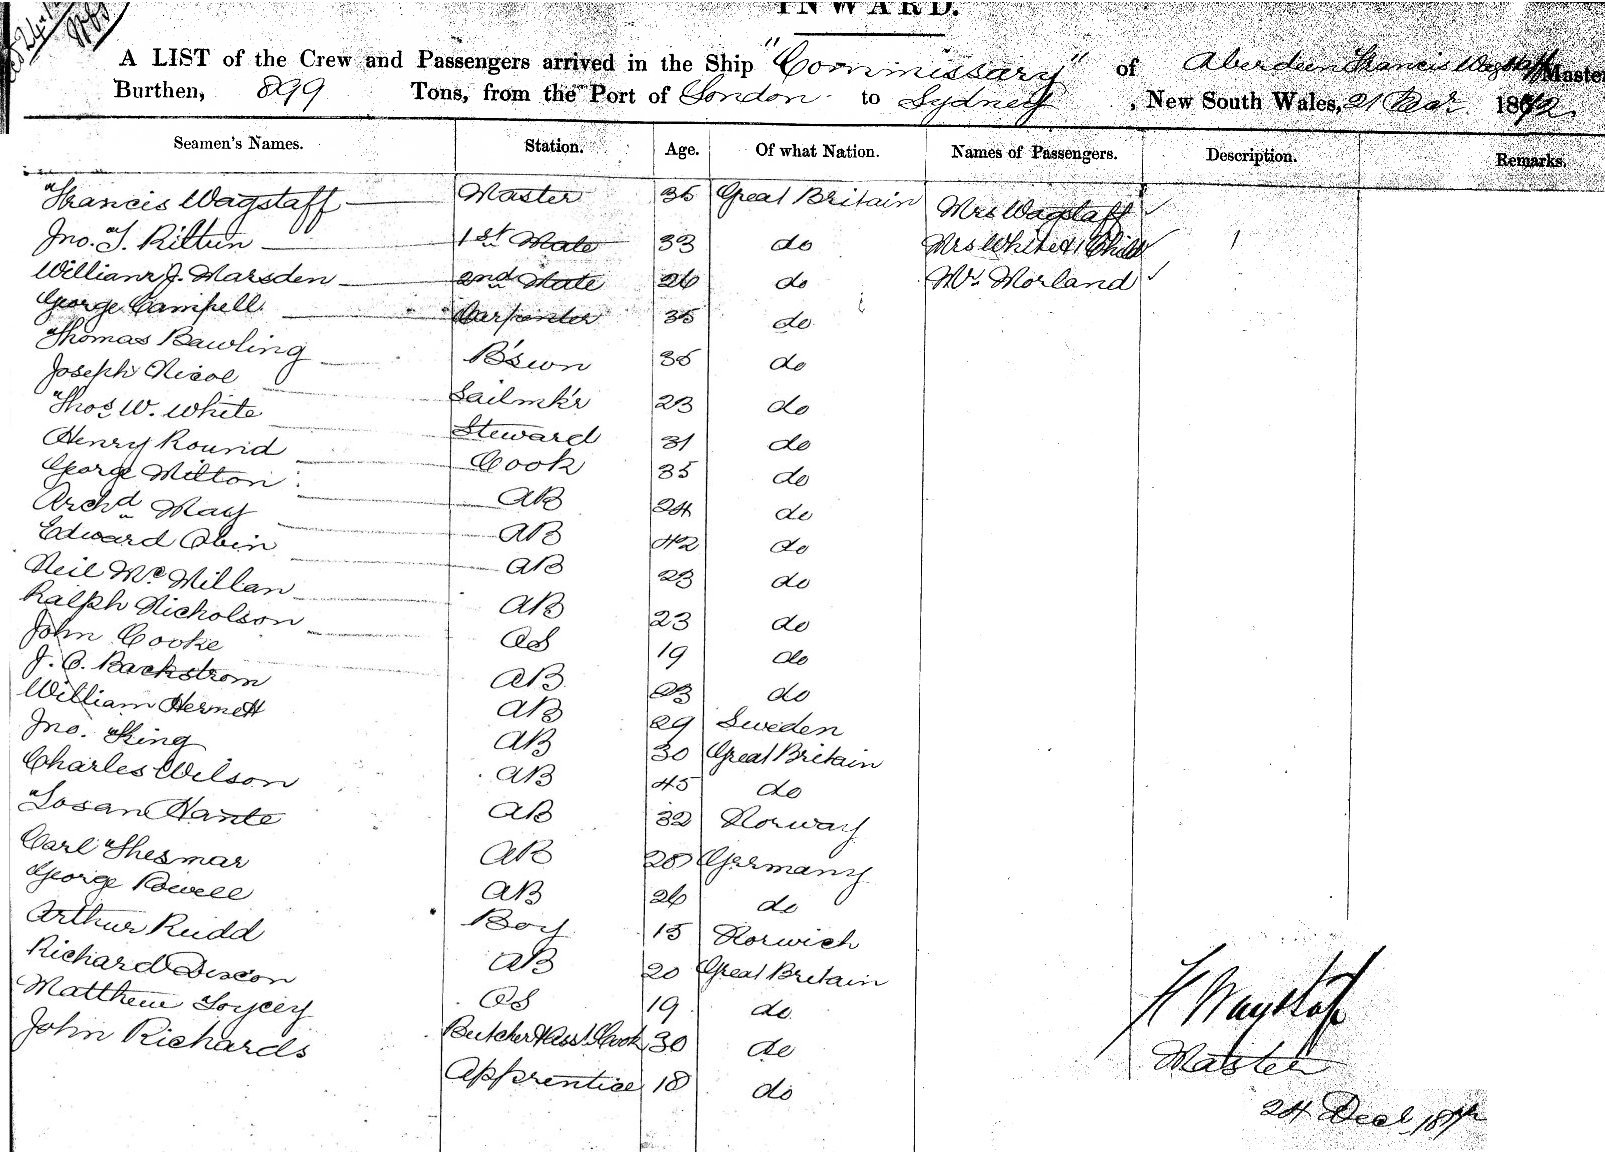 INWARD.
A LIST of the Crew and Passengers arrived in the Ship "Commissary" of Aberdeen Francis Wagstaff Master
Burthen, 899 Tons, from the Port of London to Sydney, New South Wales, 21 1872
Seamen's Names. Station. Age. Of what Nation. Names of Passengers. Description. Remarks.
Francis Wagstaff Master 35 Great Britain Mrs Wagstaff
Jno. T. Rittun 1st Mate 33 do Mrs White & 1 Child 1
William J. Marsden 2nd Mate 26 do Mr. Morland
George Campell Carpenter 35 do
Thomas Bawling B'swn 35 do
Joseph Nicol Sailmk'r 23 do
Thos W. White Steward 31 do
Henry Round Cook 35 do
George Milton AB 24 do
Archd May AB 42 do
Edward Obin AB 23 do
Neil McMillan AB 23 do
Ralph Nicholson OS 19 do
John Cooke AB 23 do
J. O. Backstrom AB 29 Sweden
William Hermett AB 30 Great Britain
Jno. King AB 45 do
Charles Wilson AB 32 Norway
Losan Hante AB 28 Germany
Carl Thesmar AB 26 do
George Powell Boy 15 Norwich
Arthur Rudd AB 20 Great Britain
Richard Dixon OS 19 do
Matthew Loycey Butcher & Asst Cook 30 do
John Richards Apprentice 18 do
F Wagstaff
Master
24 Decr 1872